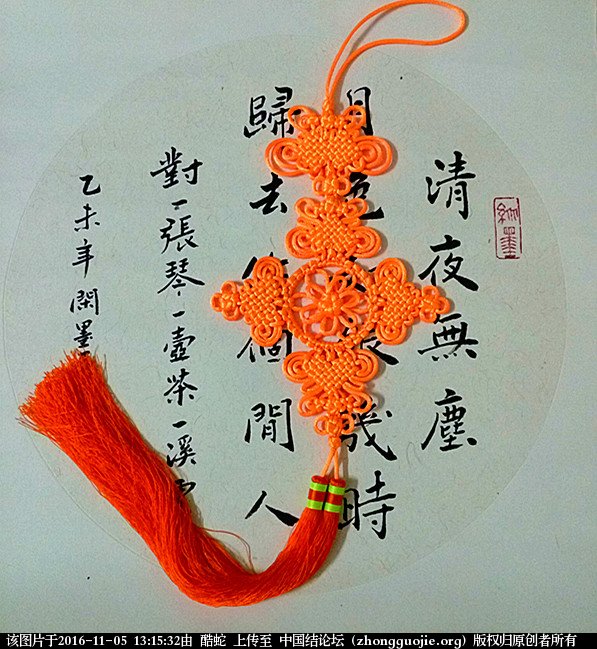 清夜無塵
月色銀幾時
歸去作個閒人
對一張琴一壺茶一溪
乙未年閑墨
该图片于2016-11-05 13:15:32由 酷蛇 上传至 中国结论坛 (zhongguojie.org) 版权归原创者所有